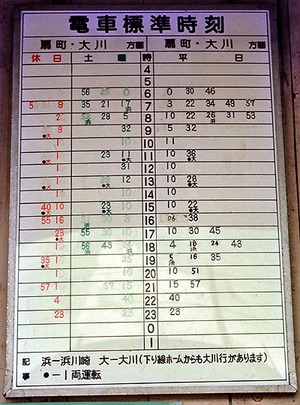 電車標準時刻
扇町・大川 方面 扇町・大川 方面
休日 土曜 時 平日
4
5
56 6 0 30 46
35 21 7 3 22 34 49 57
56 28 8 10 22 26 31 53
32 9 5 32
1 10 11
1 23 11 11 10 36
1 31 12 10
1 23 12 13 10 28
1 14 10
40 10 23 10 15 10 22
55 16 16 38
23 55 30 17 10 30 45
1 56 43 18 4 24 43
35 1 19 5 35
1 20 10 51
57 1 57 21 15 57
4 40 22 40
23 23 23
0
1
記 浜ー浜川崎 大ー大川(下り線ホームからも大川行があります)
事 ●ー1両運転